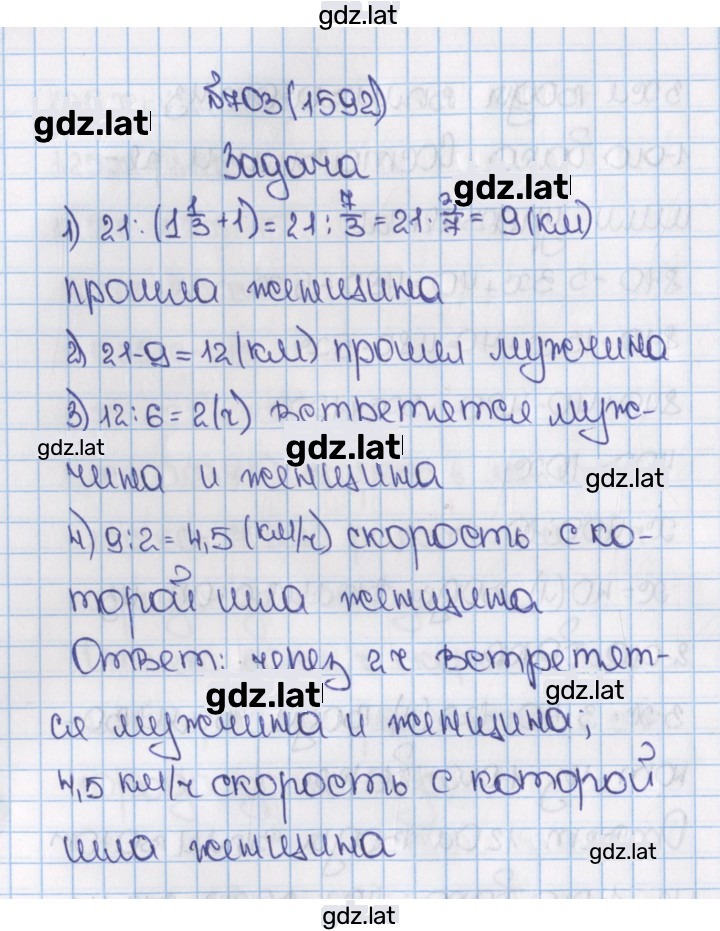 gdz.lat
№703(1592)
gdz.lat
Задача
gdz.lat
1) 21:(1 1/3+1)=21:7/3=21·3/7=9(км)
прошла женщина
2) 21-9=12(км) прошел мужчина
3) 12:6=2(ч) встретятся муж-
gdz.lat
gdz.lat
чина и женщина
gdz.lat
4) 9:2=4,5(км/ч) скорость с ко-
торой шла женщина
Ответ: через 2ч встретят-
gdz.lat
gdz.lat
ся мужчина и женщина;
4,5 км/ч скорость с которой
шла женщина
gdz.lat
gdz.lat